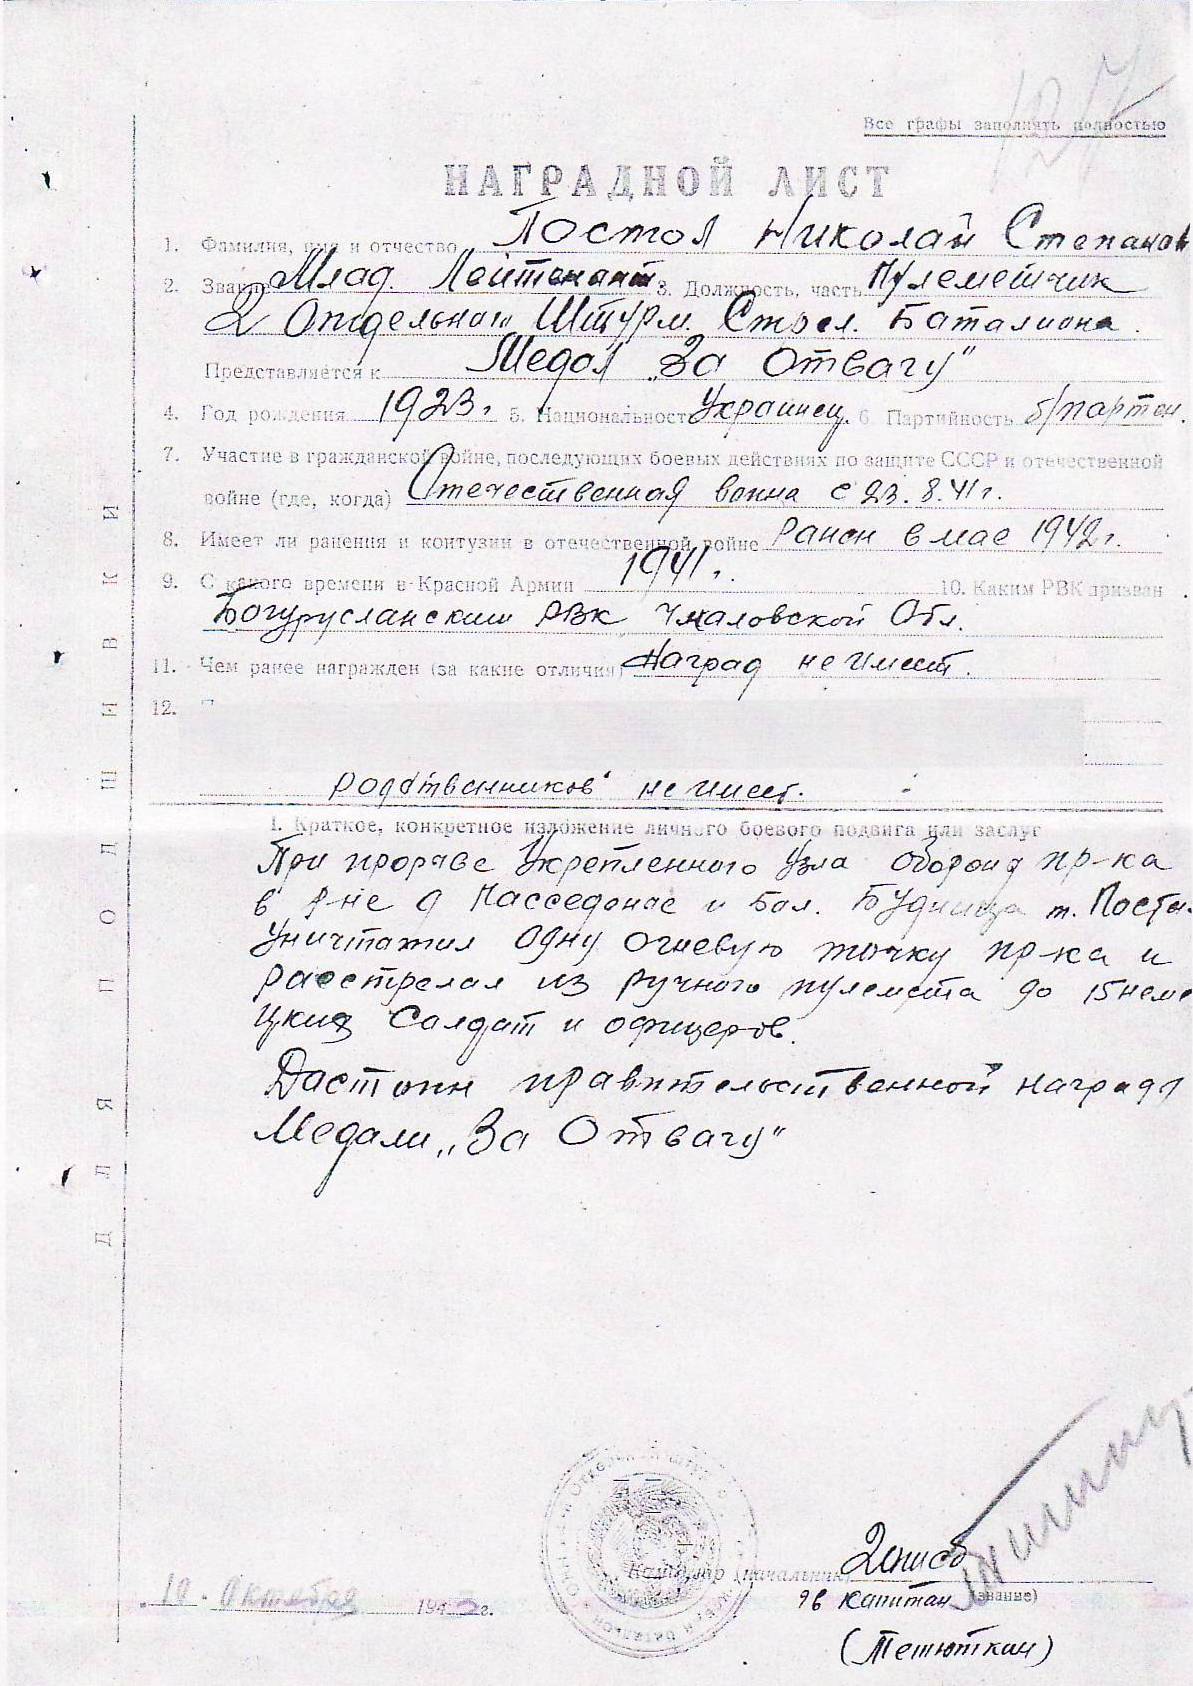 127
Все графы заполнять полностью
НАГРАДНОЙ ЛИСТ
1. Фамилия, имя и отчество Постол Николай Степанов
2. Звание Млад. Лейтенант 3. Должность, часть Пулеметчик
2 Отдельного Штурм. Стрел. Баталиона.
Представляется к Медал „За Отвагу"
4. Год рождения 1923 г. 5. Национальность Украинец. 6. Партийность б/партен.
7. Участие в гражданской войне, последующих боевых действиях по защите СССР и отечественной
войне (где, когда) Отечественная воина с 23.8.41 г.
8. Имеет ли ранения и контузии в отечественной войне Ранен в мае 1942 г.
9. С какого времени в Красной Армии 1941 г. 10. Каким РВК призван
Богурусланским РВК Чкаловской Обл.
11. Чем ранее награжден (за какие отличия) Наград не имеет.
12.
родственников не имеет.
1. Краткое, конкретное изложение личного боевого подвига или заслуг
При прорыве Укрепленного Узла Обороны пр-ка
в р-не д и Бол. т. Посто
Уничтожил одну огневую точку пр-ка и
расстрелял из ручного пулемета до 15 неме
цких Солдат и офицеров.
Достоин правительственной награды
Медали „За Отвагу"
ДЛЯ ПОДШИВКИ
Командир (начальник)
10. Октября 1943 г.
гв капитан (звание)
(Тетюткин)